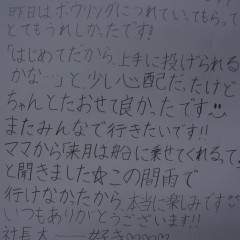 昨日はボウリングにつれていってもらって
とてもうれしかったです!
「はじめてだから、上手に投げられる
かな…」と、少し心配だったけど
ちゃんとたおせて良かったです
またみんなで行きたいです!!
ママから「来月は に乗せてくれる」って
と聞きました☆この間雨で
行けなかったから、本当に楽しみです
いつもありがとうございます!!
社長 大 好き♡♡♡♡